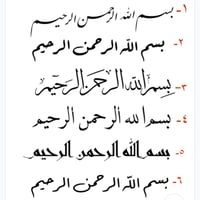 ١- بسم الله الرحمن الرحيم
٢- بسم اللّه الرحمن الرحيم
٣- بِسْمِ اللهِ الرَّحْمَنِ الرَّحِيْمِ
٤- بسم الله الرحمن الرحيم
٥- بسم الله الرحمن الرحيم
٦- بسم اللّه الرحمن الرحيم